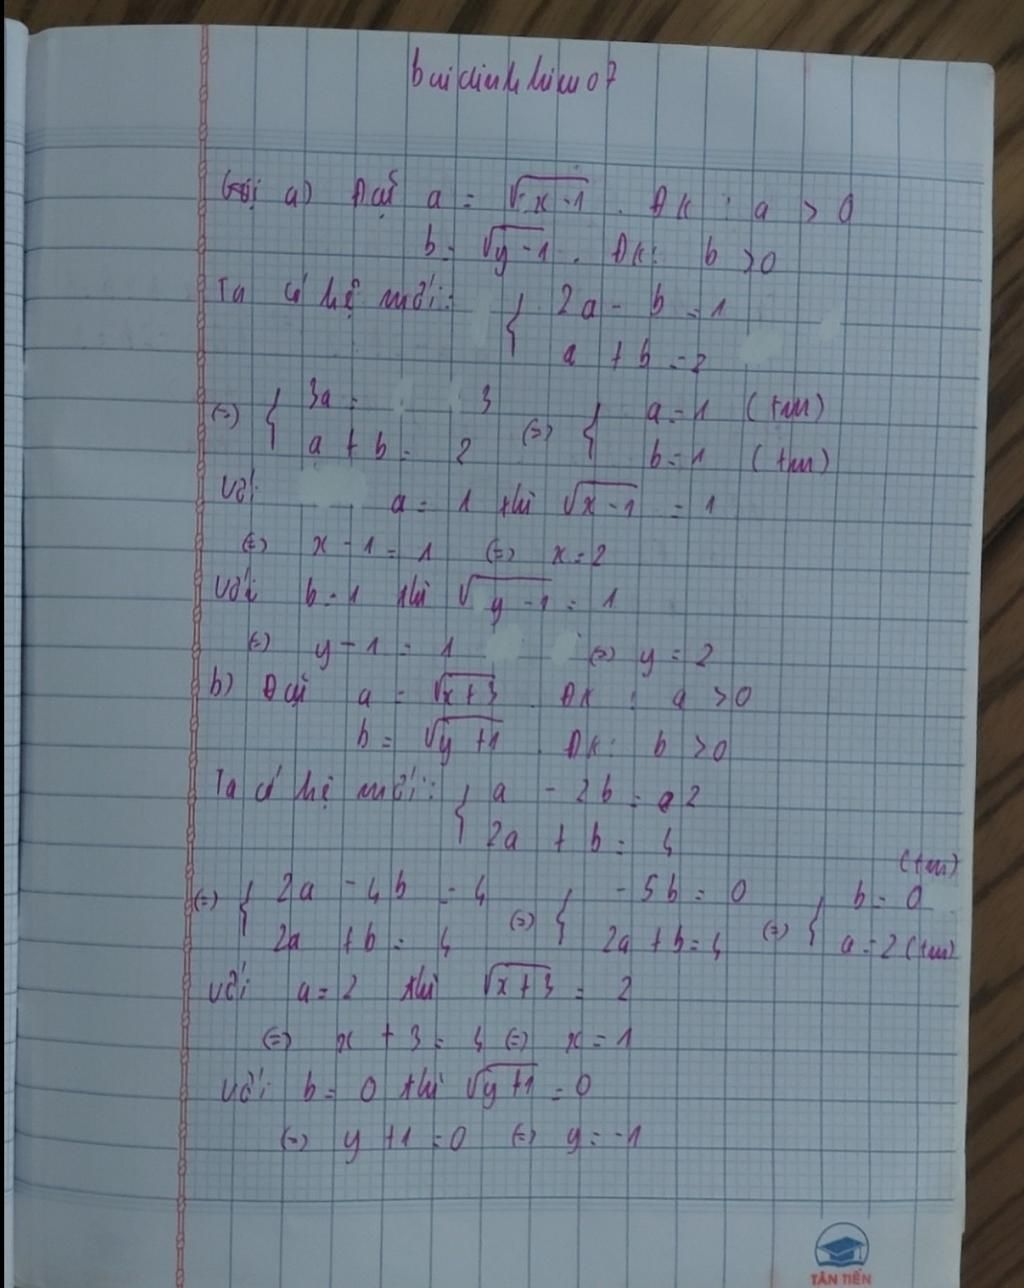 a) Đặt a = √x-1 . ĐK : a > 0
b = √y-1 . ĐK: b > 0
Ta có hệ mới: { 2a - b = 1
a + b = 2
(=) { 3a = 3 (=) { a = 1 (tm)
a + b = 2 b = 1 (tm)
Với a = 1 thì √x-1 = 1
(=) x - 1 = 1 (=) x = 2
Với b = 1 thì √y-1 = 1
(=) y - 1 = 1 (=) y = 2
b) Đặt a = √x+3 . ĐK : a > 0
b = √y+1 . ĐK: b > 0
Ta có hệ mới: { a - 2b = 2
2a + b = 4
(tm)
(=) { 2a - 4b = 4 (=) { -5b = 0 (=) { b = 0
2a + b = 4 2a + b = 4 a = 2 (tm)
Với a = 2 thì √x+3 = 2
(=) x + 3 = 4 (=) x = 1
Với b = 0 thì √y+1 = 0
(=) y + 1 = 0 (=) y = -1
TÂN TIẾN